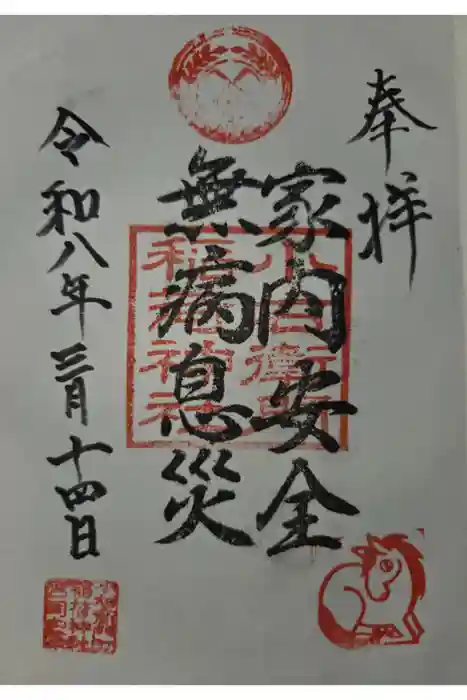 奉拝
家内安全
無病息災
稲荷神社
令和八年三月十四日